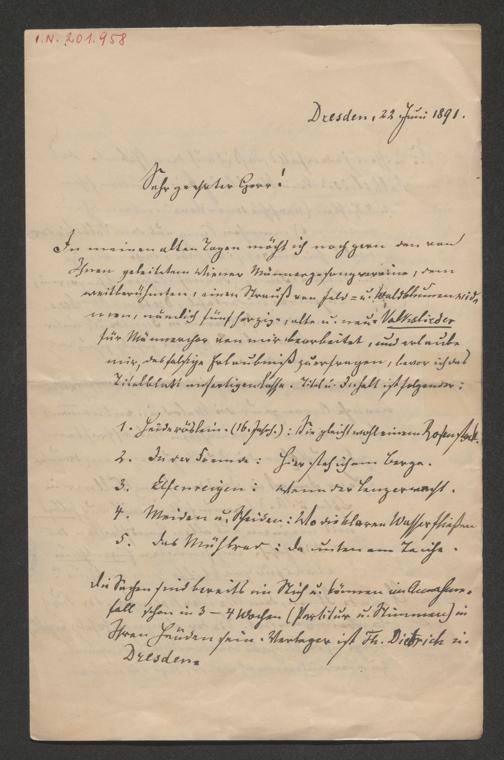 I.N. 201.958
Dresden, 22 Juni 1891.
Sehr geehrter Herr!
In meinen alten Tagen möcht ich noch gern den von
Ihnen geleiteten Wiener Männergesangvereine, dem
weitberühmten, einen Strauß von Feld= u. Waldblumen wid-
men, nämlich fünf herzige, alte u. neue Volkslieder
für Männerchor von mir bearbeitet, und erlaube
mir, desfalsige Erlaubniß zu erfragen, bevor ich das
Titelblatt anfertigen lasse. Titel u. Inhalt ist folgender:
1. Heideröslein. (16. Jahrh.): Sie gleicht wohl einem Rosenstock.
2. In der Fremde: Hier steh ich am Berge.
3. Elfenreigen: wenn der Lenz erwacht.
4. Meiden u. Scheiden: Wo die klaren Wasser fließen
5. Das Mühlrad: da unten am Teiche.
Die Sachen sind bereits im Stich u. können im Annahme-
fall schon in 3 – 4 Wochen (Partitur u. Stimmen) in
Ihren Händen sein. Verleger ist Th. Dietrich in
Dresden.